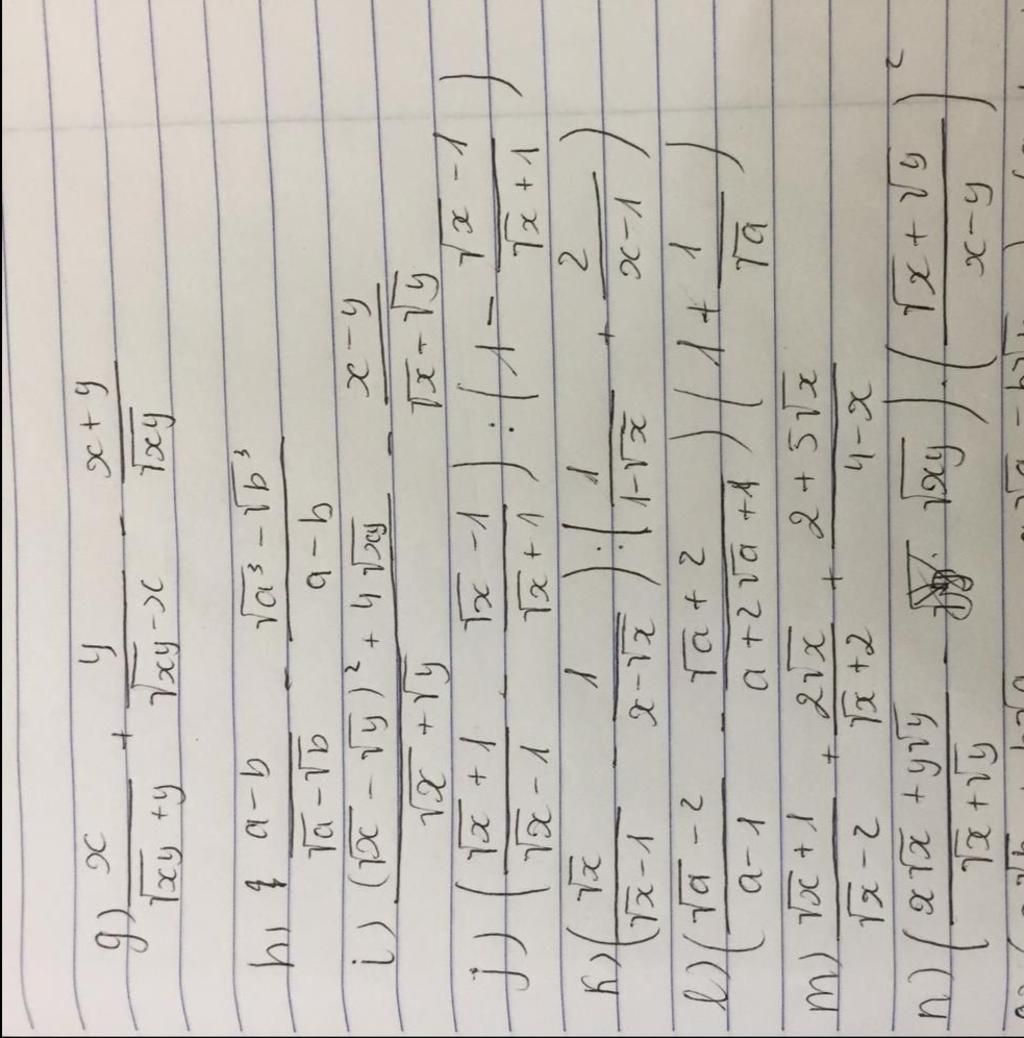 g) x/(√xy + y) + y/(√xy - x) - (x + y)/√xy
h) (a - b)/(√a - √b) - (√a³ - √b³)/(a - b)
i) ((√x - √y)² + 4√xy)/(√x + √y) - (x - y)/(√x - √y)
j) ((√x + 1)/(√x - 1) - (√x - 1)/(√x + 1)) : (1 - (√x - 1)/(√x + 1))
k) (√x/(√x - 1) - 1/(x - √x)) : (1/(1 - √x) + 2/(x - 1))
l) ((√a - 2)/(a - 1) - (√a + 2)/(a + 2√a + 1)) (1 + 1/√a)
m) (√x + 1)/(√x - 2) + 2√x/(√x + 2) + (2 + 5√x)/(4 - x)
n) ((x√x + y√y)/(√x + √y) - √xy) . ((√x + √y)/(x - y))²